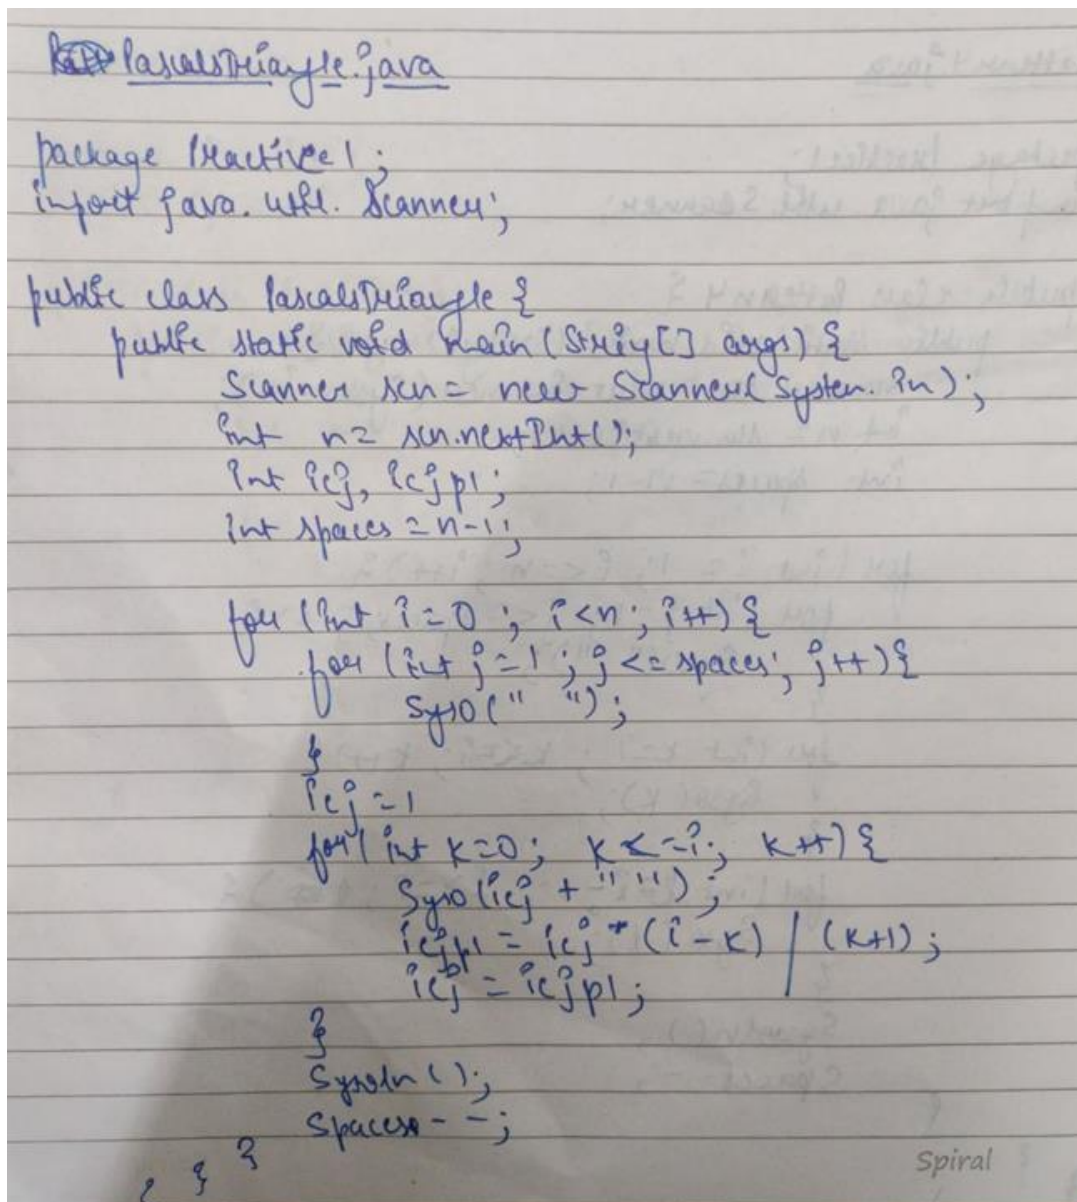 PascalsTriangle.java
package Practice1;
import java.util.Scanner;
public class PascalsTriangle {
public static void main(String[] args) {
Scanner scn = new Scanner(System.in);
int n = scn.nextInt();
int icj, icjp1;
int spaces = n-1;
for (int i = 0 ; i < n ; i++) {
for (int j = 1 ; j <= spaces; j++) {
Syso(" ");
}
icj = 1
for (int k=0; k <= i; k++) {
Syso(icj + " ");
icjp1 = icj * (i - k) / (k+1);
icj = icjp1;
}
Sysoln();
Spaces--;
} } }
Spiral